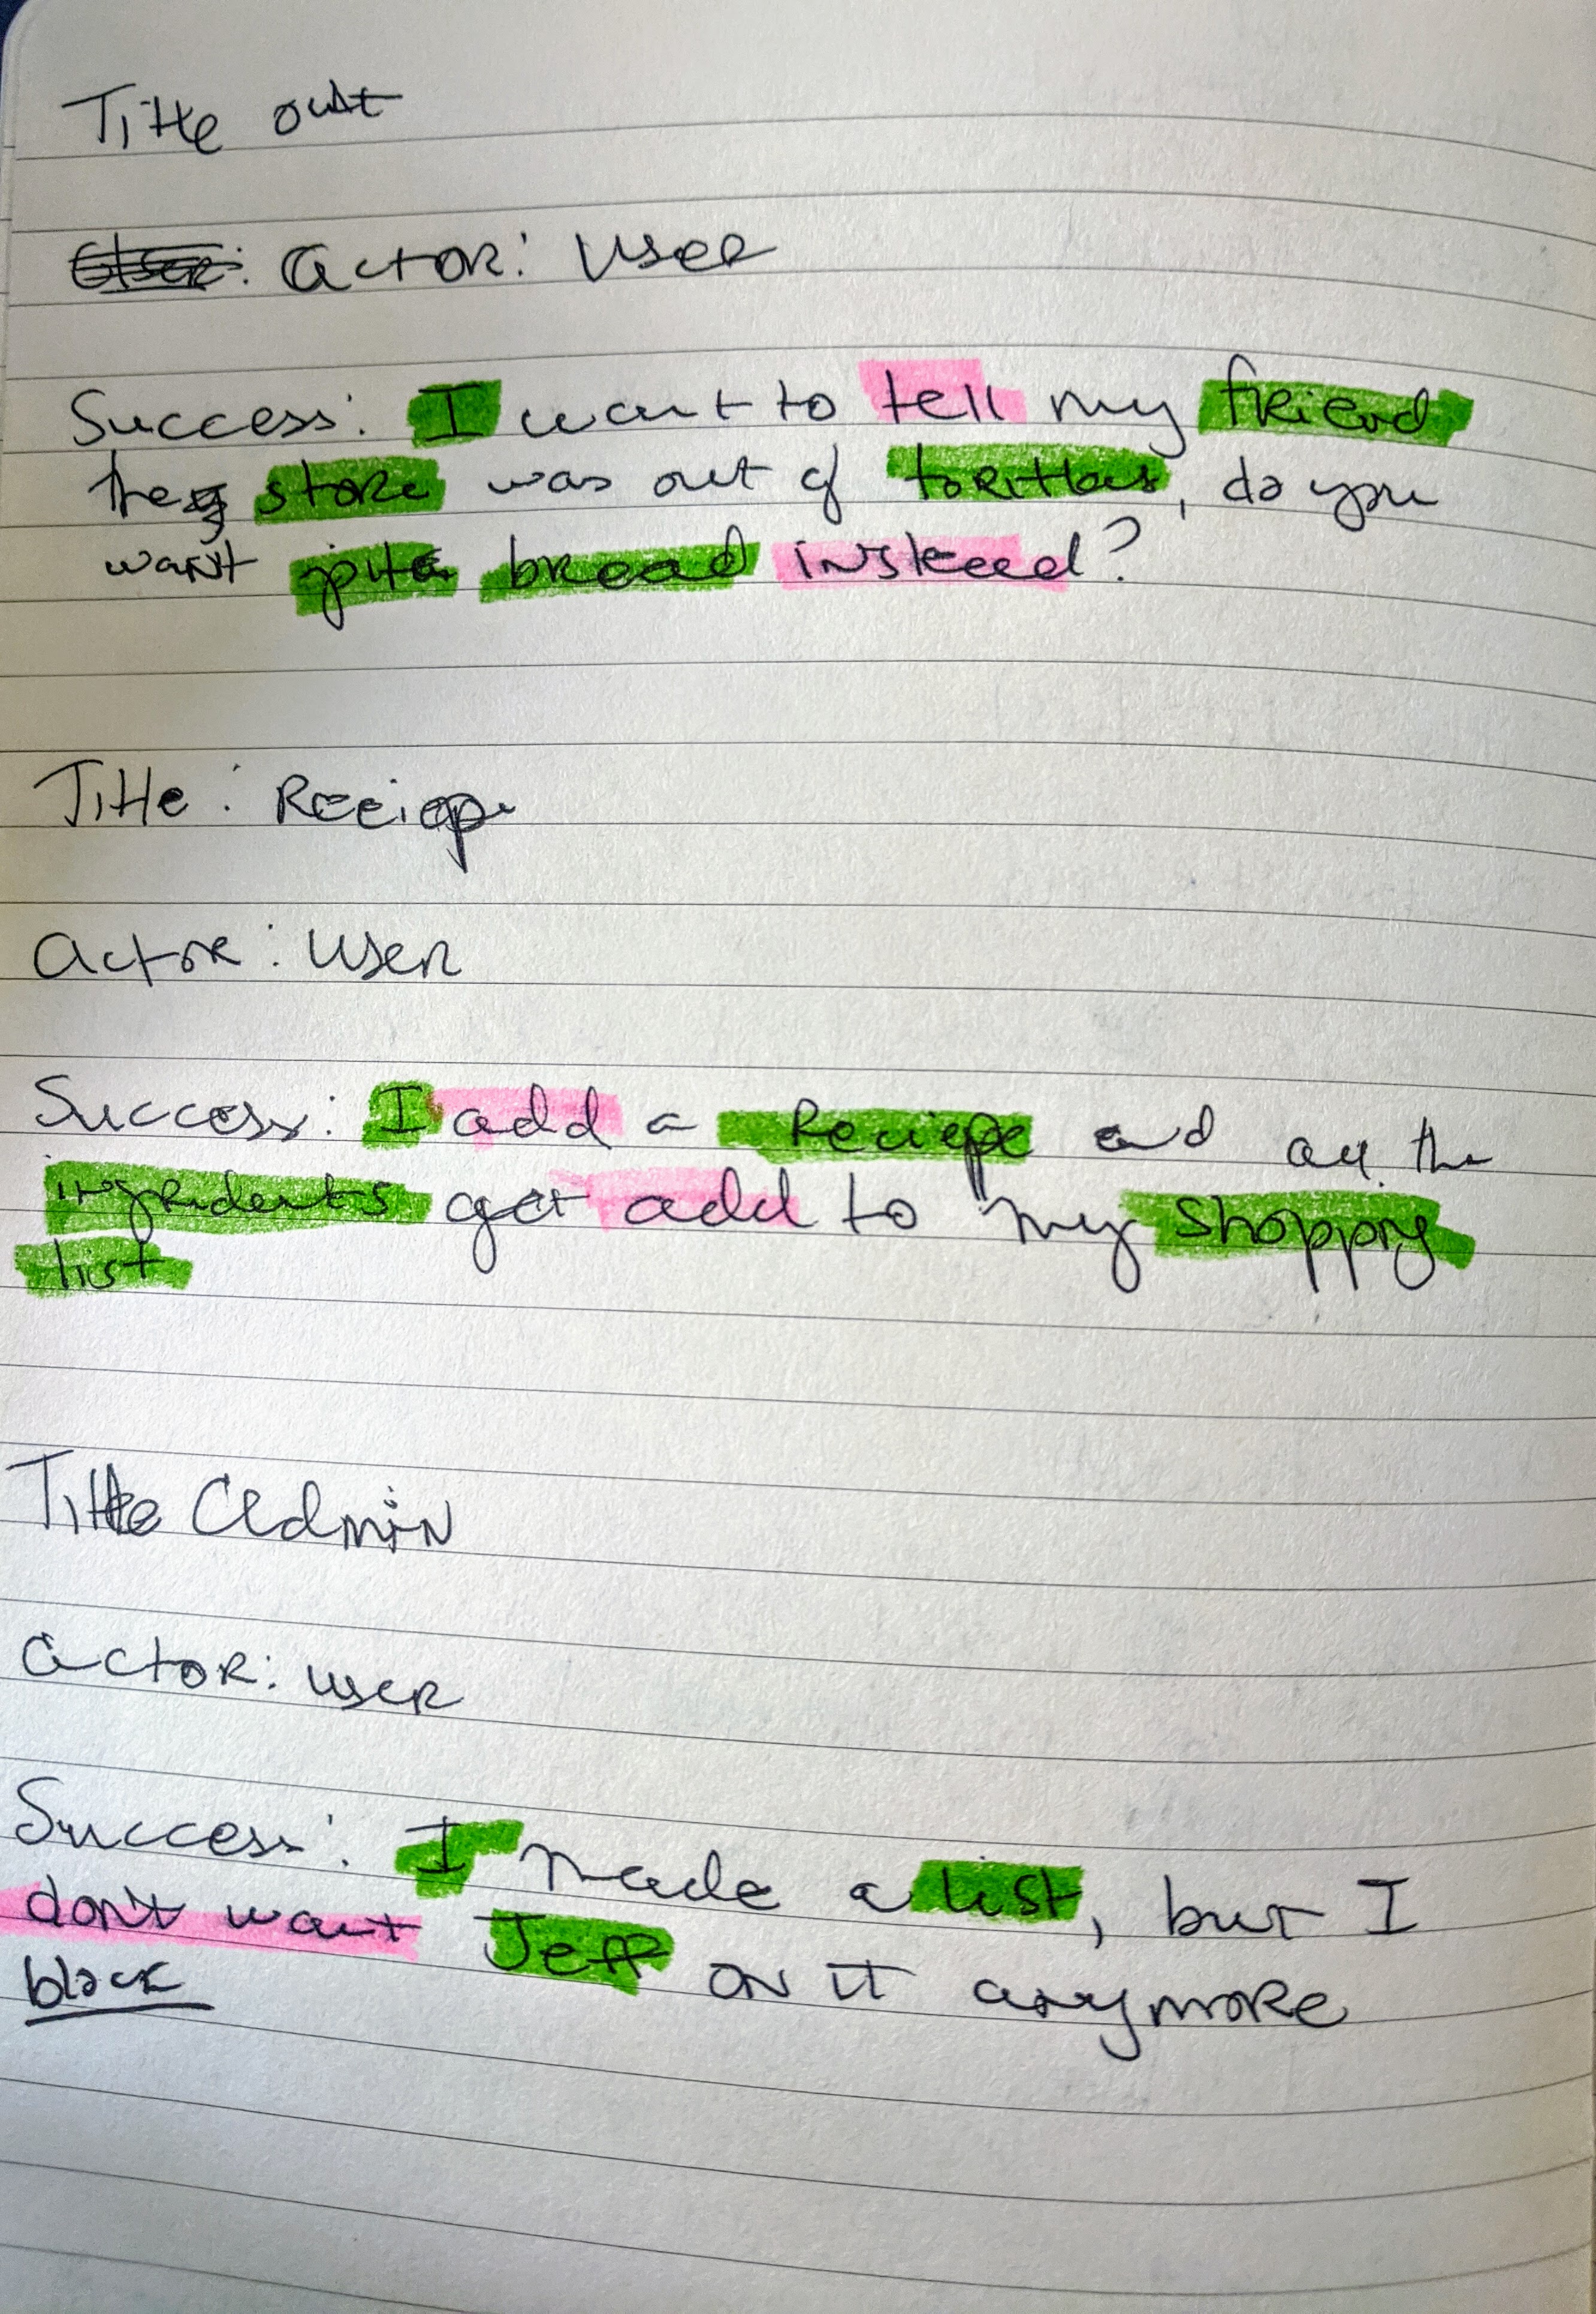 Title out
Actor: User
Success: I want to tell my friend
the store was out of toritlas, do you
want pita bread instead?
Title: Reciepe
Actor: User
Success: I add a Reciepe and all the
ingridents get add to my shopping
list
Title Admin
Actor: User
Success: I made a list, but I
don't want Jeff on it anymore
block